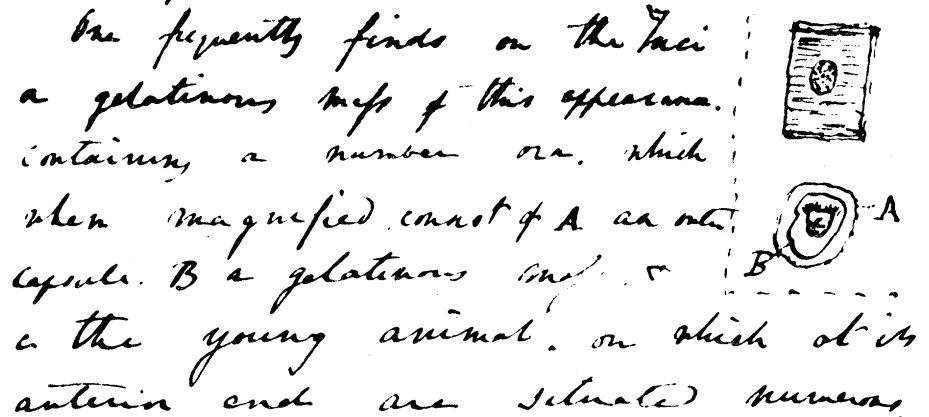 One frequently finds on the Fuci
a gelatinous mass of this appearance.
containing a number ova, which
when magnified consist of A an outer
capsule. B a gelatinous mass &
c the young animal, on which at its
anterior end are situated numerous
A
B
c